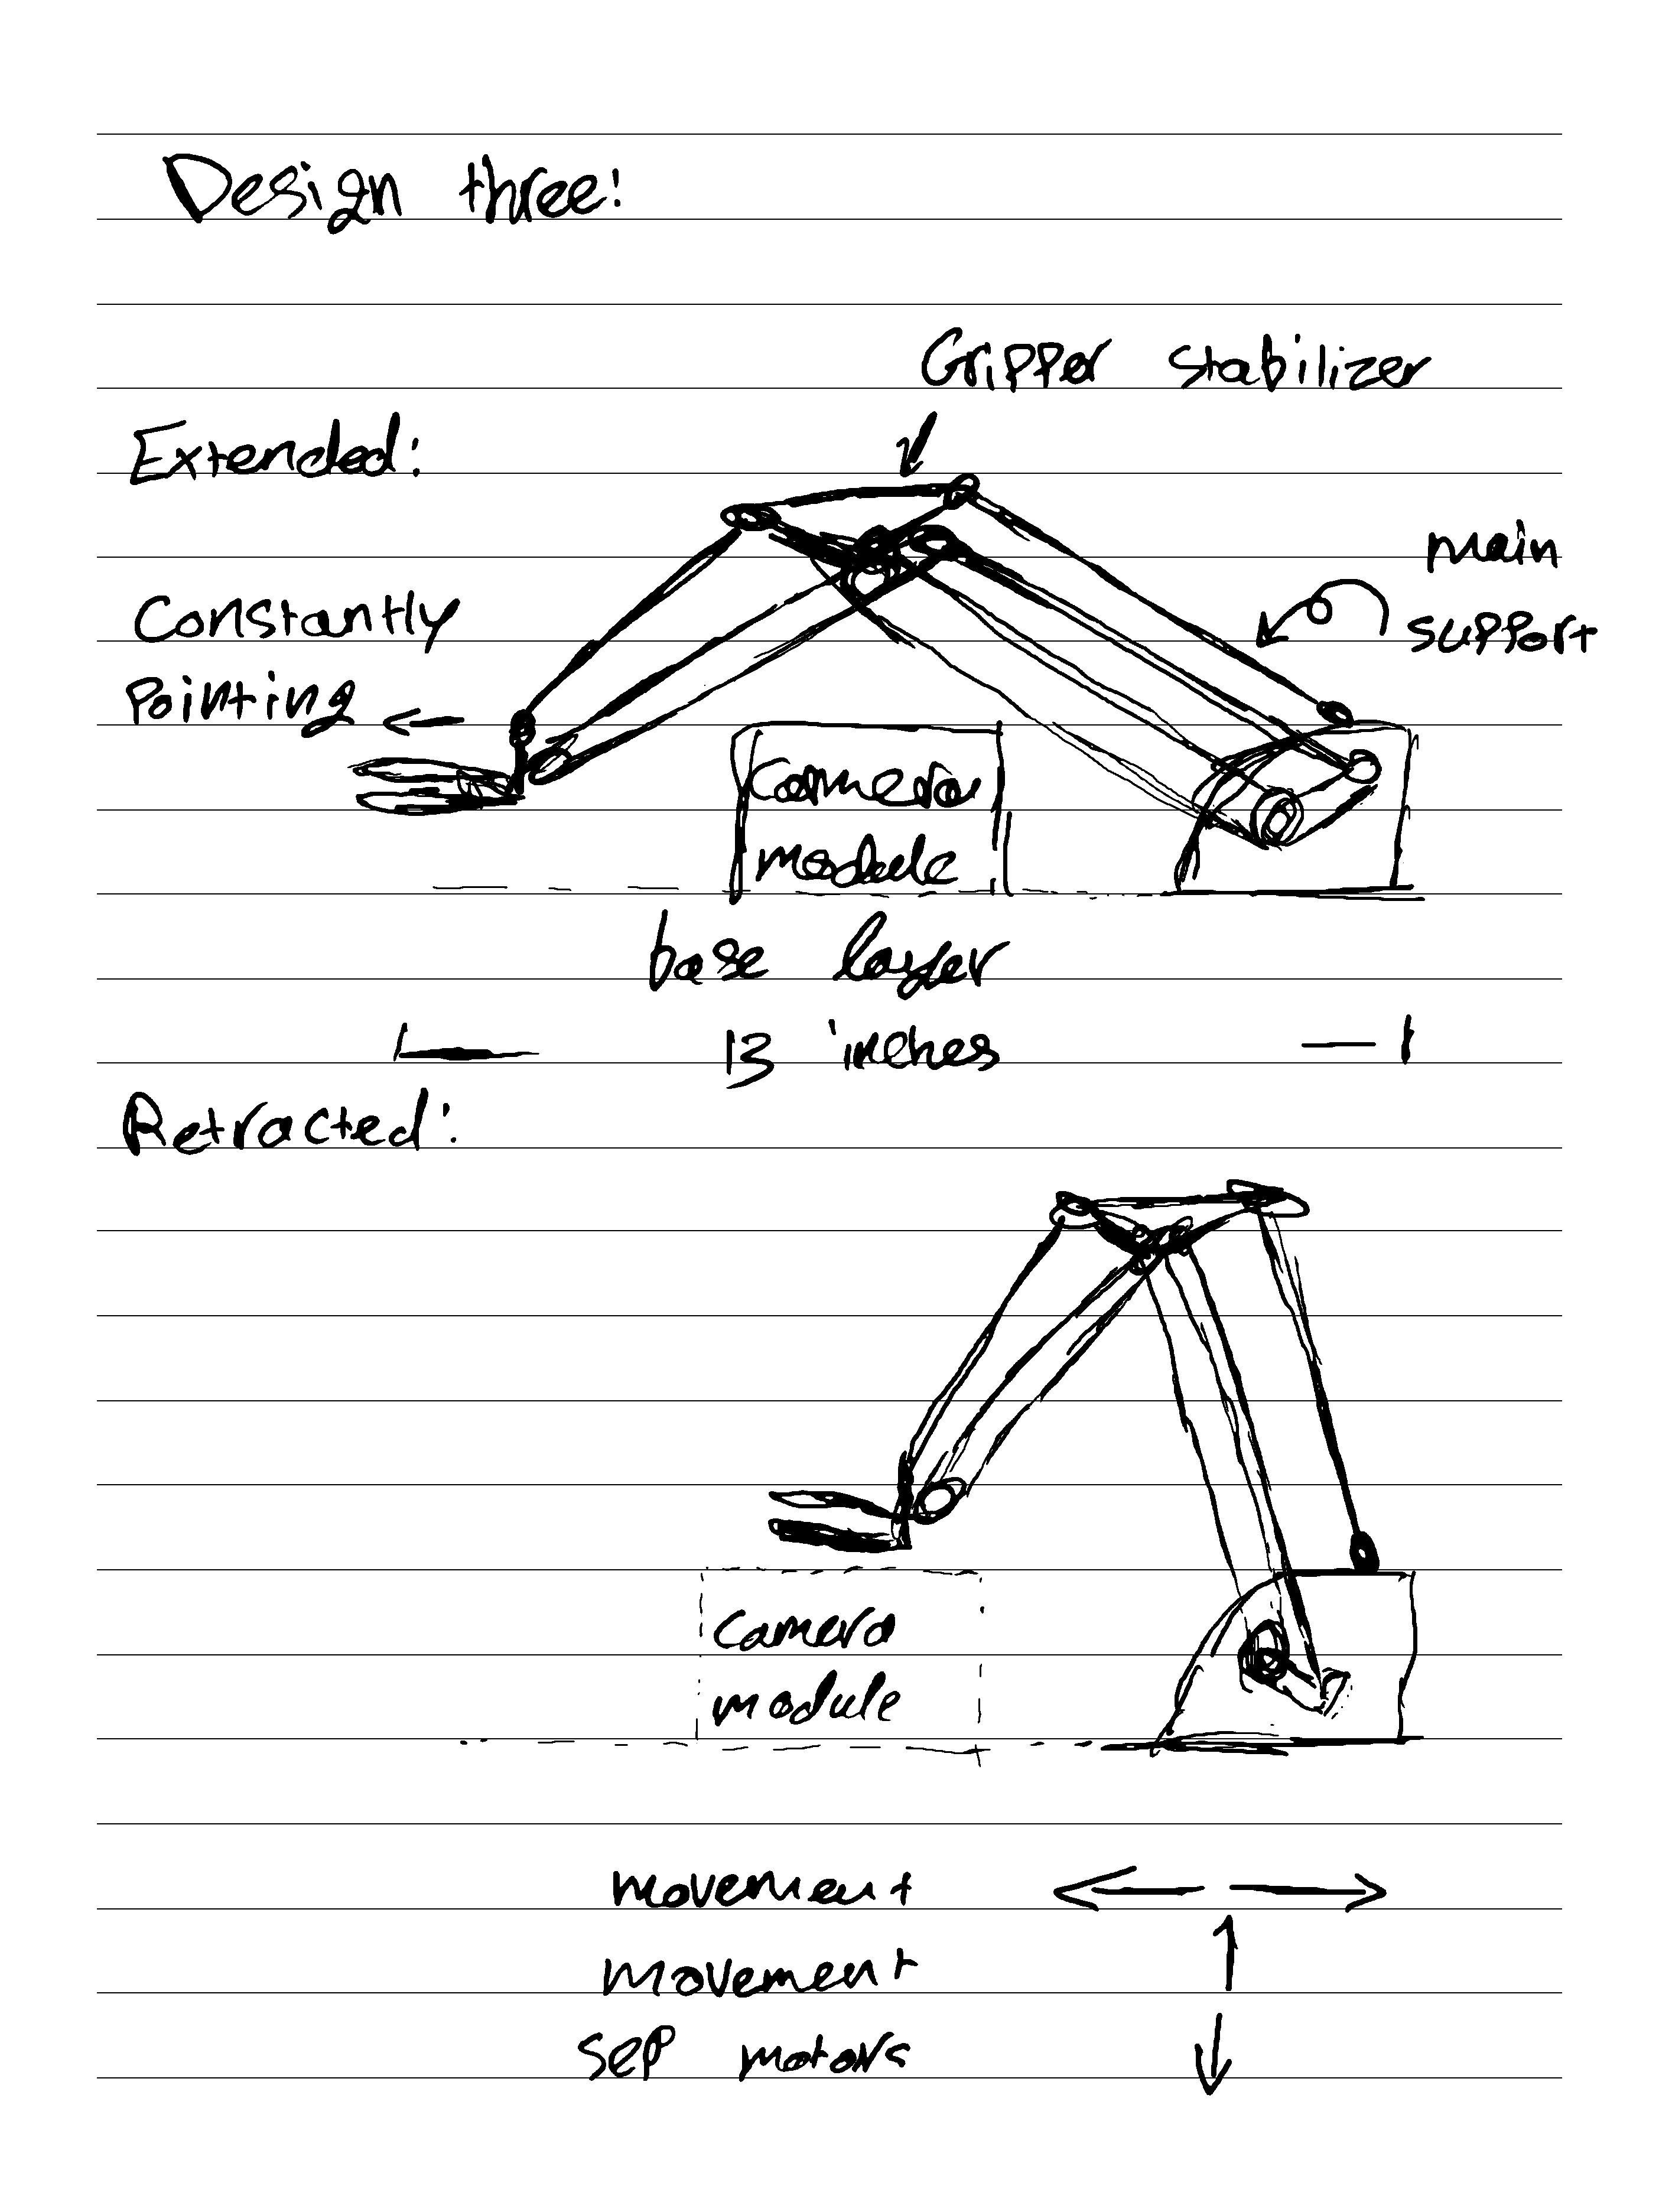 Design three:
Gripper stabilizer
Extended:
main
support
Constantly
pointing
camera
module
base layer
13 inches
Retracted:
camera
module
movement
movement
sep motors